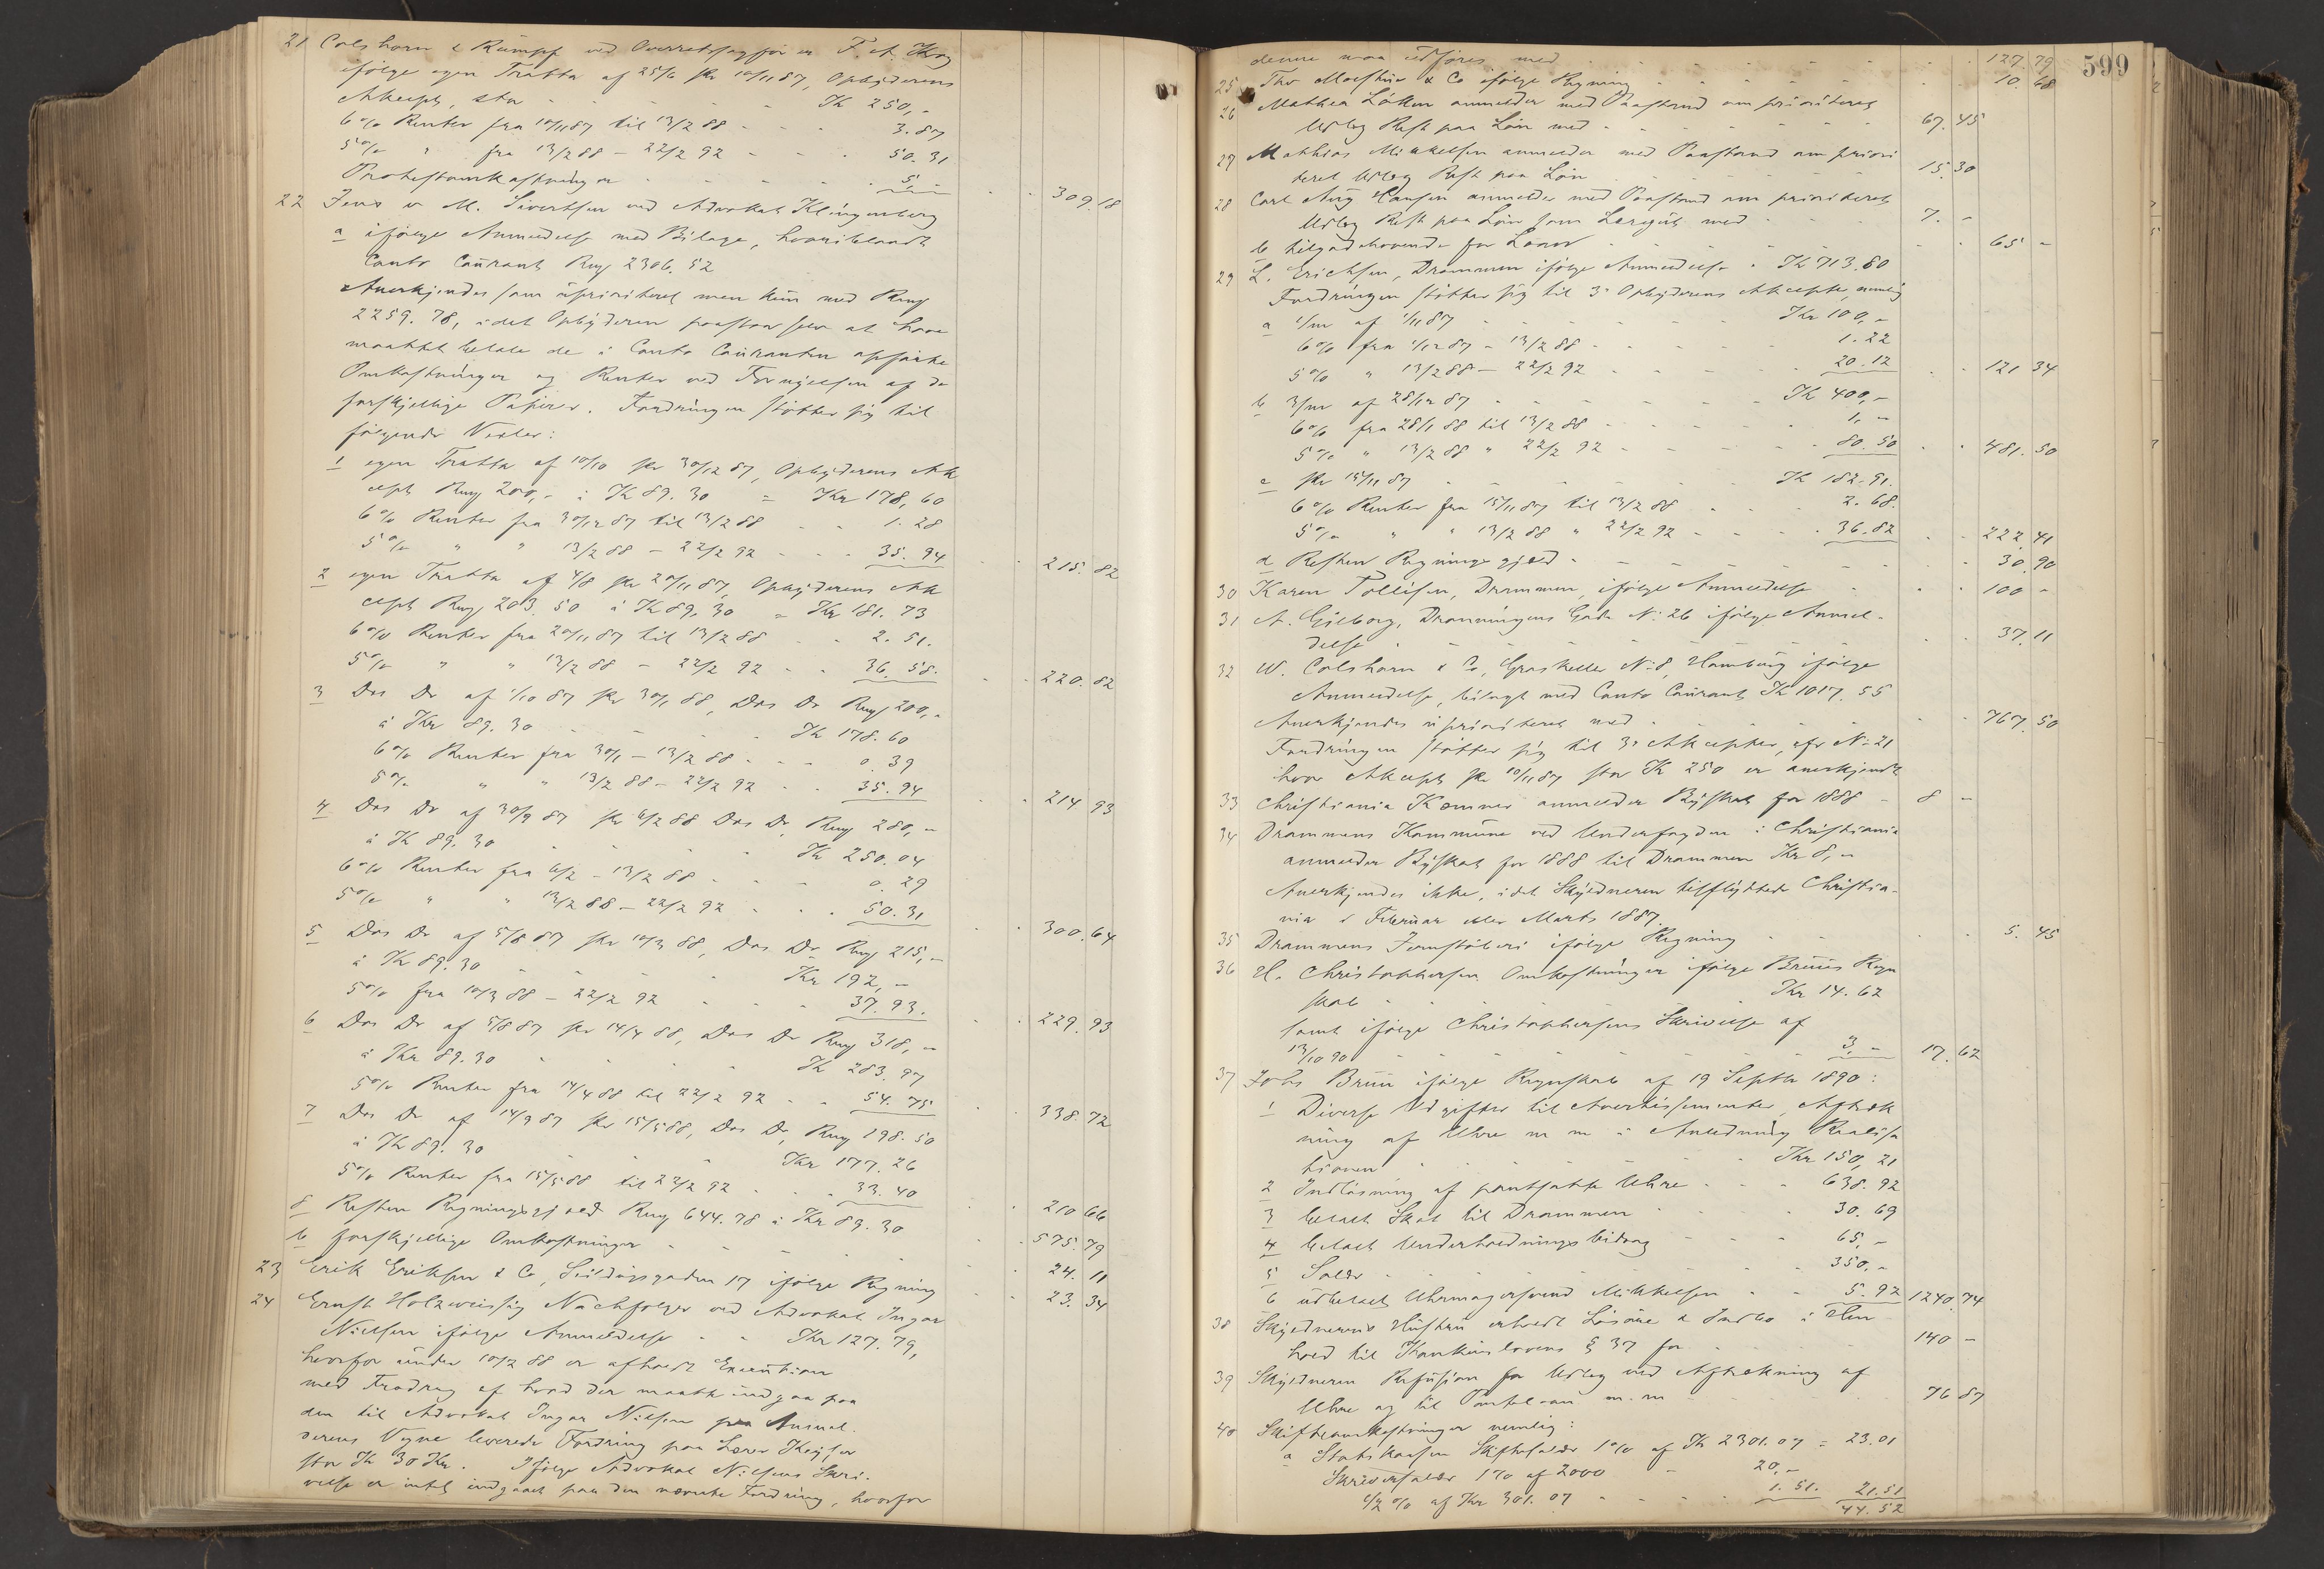 21 Colshorn & Kümpf ved Overretssagfører F. A. Krog
ifølge egen Tratta af 25/6 pr 10/11 87, Opbyderens
Akcept, stor - - - - Kr 250,-
6% Renter fra 10/11 87 til 13/2 88 - - - 3.87
5% " fra 13/2 88 - 22/2 92 - - - 50.31
Protestomkostninger - - - - 5,- - - 309.18
22 Jens v M. Sivertsen ved Advokat Klingenberg
a ifølge Anmeldelse med Bilage, hvoriblandt
Conto Courant Rmg 2306.52
Anerkjendes som uprioriteret men kun med Rmg
2259.78, idet Opbyderen paastaar selv at have
maattet betale de i Conto Couranten opførte
Omkostninger og Renter ved Fornyelsen af de
forskjellige Papirer. Fordringen støtter sig til
følgende Vexler:
1 egen Tratta af 10/10 pr 30/12 87, Opbyderens Ak
cept Rmg 200,- à Kr 89.30 = Kr 178,60
6% Renter fra 30/12 87 til 13/2 88 - - 1.28
5% " " 13/2 88 - 22/2 92 - - - 35.94 - - 215.82
2 egen Tratta af 4/8 pr 20/11 87, Opbyderens Ak
cept Rmg 203.50 à Kr 89.30 = Kr 181.73
6% Renter fra 20/11 87 til 13/2 88 - - 2.51.
5% " " 13/2 88 - 22/2 92 - - 36.58. - - 220.82
3 Dos Do af 1/10 87 pr 30/1 88, Dos Do Rmg 200,-
à Kr 89.30 - - - Kr 178.60
6% Renter fra 30/1 - 13/2 88 - - - 0.39
5% " " 13/2 88 - 22/2 92 - - 35.94 - - 214 93
4 Dos Do af 30/9 87 pr 6/2 88 Dos Do, Rmg 280,-
à Kr 89.30 - - - Kr 250.04
6% Renter fra 6/2 - 13/2 88 - - - 0.29
5% " " 13/2 88 - 22/2 92 - - - 50.31 - - 300.64
5 Dos Do af 5/8 87 pr 10/3 88, Dos Do Rmg 215,-
à Kr 89.30 - - - Kr 192,-
5% fra 10/3 88 - 22/2 92 - - - 37.93. - - 229.93
6 Dos Do af 5/8 87 pr 14/4 88, Dos Do Rmg 318,-
à Kr 89.30 - - - Kr 283.97
5% Renter fra 14/4 88 til 22/2 92 - - 54.75 - - 338.72
7 Dos Do af 14/9 87 pr 15/5 88, Dos Do, Rmg 198.50
à Kr 89.30 - - - Kr 177.26
5% Renter fra 15/5 88 til 22/2 92 - - - 33.40 - - 210 66
8 Resten Regningsgjæld Rmg 644.78 à Kr 89.30 - - 575.79
b forskjellige Omkostninger - - - - 24.11
23 Erik Eriksen & Co, ifølge Regning - - 23.34
24 Ernst Holzweissig Nachfolger ved Advokat Ingar
Nielsen ifølge Anmeldelse - - Kr 127.79,
hvorfor under 10/2 88 er afholdt Execution
med Fradrag af hvad der maatte indgaa paa
den til Advokat Ingar Nielsen paa Anmel-
derens Vegne leverede Fordring paa Lærer Keyser
stor Kr 30 Kr. Ifølge Advokat Nielsens Skri-
velse er intet indgaaet paa den nævnte Fordring, hvorfor
599
denne maa udføres med - - - - 127.79
25 Thv Moestue & Co ifølge Regning - - - 10.68
26 Mathea Løken anmelder med Paastand om prioriteret
Udlæg Rest paa Løn med - - - - 67.45
27 Mathias Mikkelsen anmelder med Paastand om priori
teret Udlæg Rest paa Løn - - - 15.30
28 Carl Aug Hansen anmelder med Paastand om prioriteret
Udlæg Rest paa Løn som Læregut med - - 7.-
b tilgodehavende for Laan - - - - 65 -
29 L. Erichsen, Drammen ifølge Anmeldelse - Kr 713.80
Fordringen støtter sig til 3 Opbyderens Akcepter, nemlig
a 1/m af 1/11 87 - - - Kr 100,-
6% fra 1/12 87 - 13/2 88 - - - 1.22
5% " 13/2 88 - 22/2 92 - - - 20.12 - - 121 34
b 3/m af 28/10 87 - - - Kr 400,-
6% fra 28/1 88 til 13/2 88 - - - 1,-
5% " 13/2 88 " 22/2 92 - - - 80.50 - - 481.50
c pr 15/11 87 - - - Kr 182.91.
6% Renter fra 15/11 87 til 13/2 88 - - - 2.68.
5% " " 13/2 88 " 22/2 92 - - - 36.82 - - 222,41
d Resten Regningsgjæld - - - - 30.90
30 Karen Tollefsen, Drammen, ifølge Anmeldelse - - 100 -
31 A. Gilborg, Dronningens Gade No 26 ifølge Anmel-
delse - - - - 37.11
32 W. Colshorn & Co, Graskeller No 8, Hamburg ifølge
Anmeldelse, bilagt med Conto Courant Kr 1017.55
Anerkjendes uprioriteret med - - - - 767.50
Fordringen støtter sig til 3 Akcepter, cfr No 21
hvor Akcept pr 10/11 87 stor Kr 250 er anerkjendt
33 Christiania Kæmner anmelder Byskat for 1888 - 8 -
34 Drammens Kommune ved Underfogden i Christiania
anmelder Byskat for 1888 til Drammen Kr 8,-
Anerkjendes ikke, idet Skyldneren tilflyttede Christia-
nia i Februar eller Marts 1887,
35 Drammens Jernstøberi ifølge Regning - - - 5.45
36 H. Christophersen Omkostninger ifølge Bruuns Regn
skab - - - Kr 14.62
samt ifølge Christophersens Skrivelse af
13/10 90 - - - - 3,- 17.62
37 Johs Bruun ifølge Regnskab af 19 Septbr 1890:
1 Diverse Udgifter til Avertissementer, Aftræk
ning af Uhre m m i Anledning Realisa
tionen - - - Kr 150,21
2 Indløsning af pantsatte Uhre - - - 638.92
3 betalt Skat til Drammen - - - 30.69
4 betalt Underholdningsbidrag - - - 65,-
5 Salær - - - - 350,-
6 udbetalt Uhrmagersvend Mikkelsen - - 5.92 1240.74
38 Skyldnerens Hustru erholdt Løsøre & Indbo i Hen
hold til Konkurslovens § 37 for - - - 140 -
39 Skyldneren Refusion for Udlæg ved Aftrækning af
Uhre og til m.m - - - 76 87
40 Skifteomkostninger nemlig:
a Statskassen Skiftesalær 1% af Kr 2301.07 = 23.01
Skriversalær 1% af 2000 - 20,-
1/2 % af Kr 301.07 - - - 1.51. 21.51
44.52